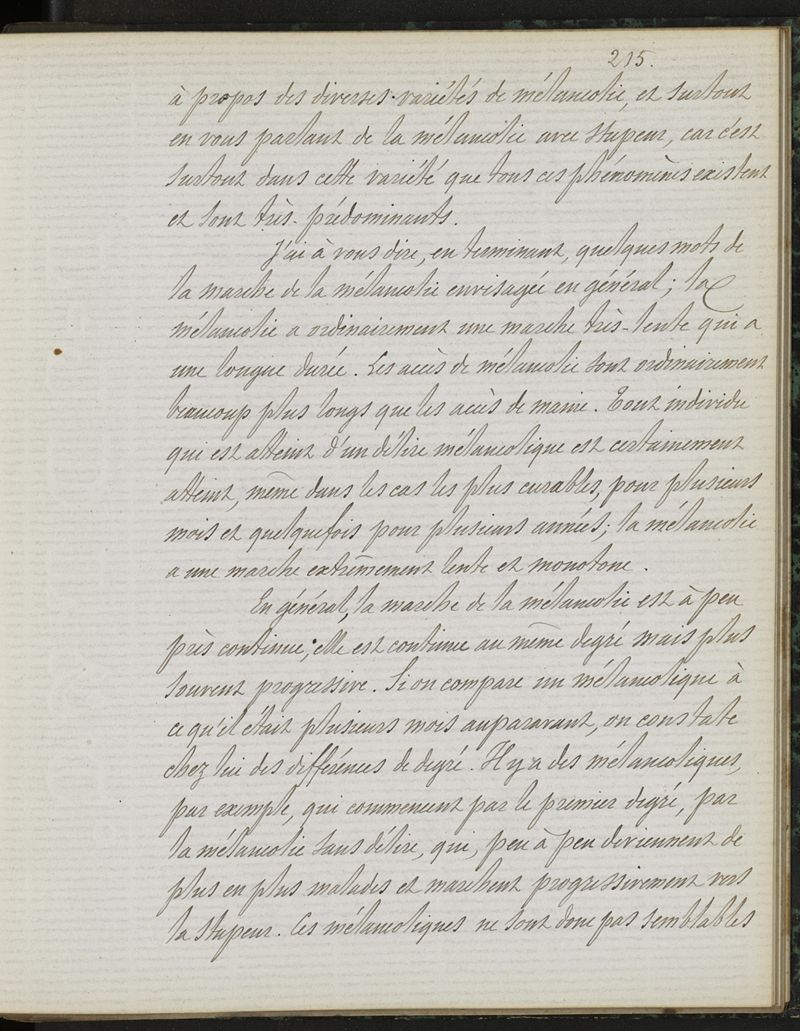 215.
à propos des diverses variétés de mélancolie, et surtout
en vous parlant de la mélancolie avec stupeur, car c'est
surtout dans cette variété que tous ces phénomènes existent
et sont très-prédominants.
J'ai à vous dire, en terminant, quelques mots de
la marche de la mélancolie envisagée en général ; la
mélancolie a ordinairement une marche très-lente qui a
une longue durée. Les accès de mélancolie sont ordinairement
beaucoup plus longs que les accès de manie. Tout individu
qui est atteint d'un délire mélancolique est certainement
atteint, même dans les cas les plus curables, pour plusieurs
mois et quelquefois pour plusieurs années ; la mélancolie
a une marche extrêmement lente et monotone.
En général, la marche de la mélancolie est à peu
près continue ; elle est continue au même degré mais plus
souvent progressive. Si on compare un mélancolique à
ce qu'il était plusieurs mois auparavant, on constate
chez lui des différences de degré. Il y a des mélancoliques,
par exemple, qui commencent par le premier degré, par
la mélancolie sans délire, qui, peu à peu deviennent de
plus en plus malades et marchent progressivement vers
la stupeur. Ces mélancoliques ne sont donc pas semblables